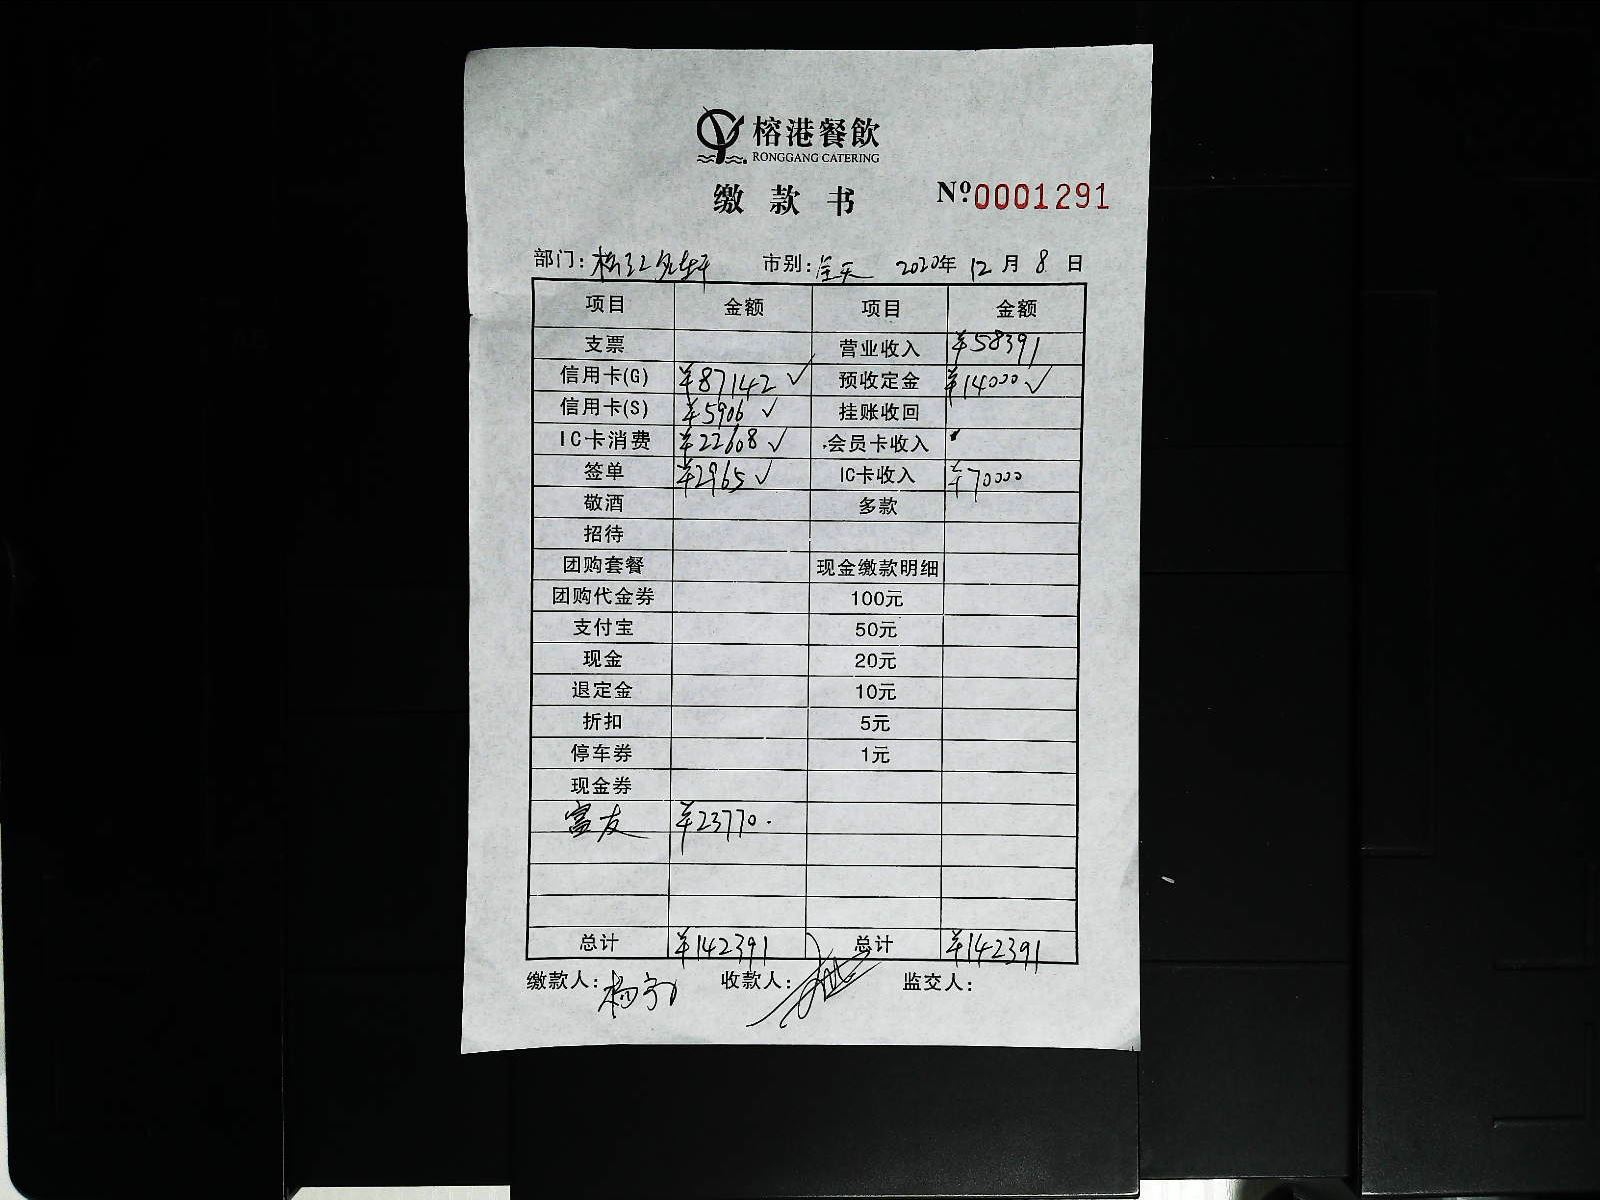 榕港餐飲
RONGGANG CATERING
缴款书 Nº0001291
部门: 市别:全天 2020年12月8日
项目 金额 项目 金额
支票 营业收入 ¥58391
信用卡(G) ¥87142 ✓ 预收定金 ¥14000 ✓
信用卡(S) ¥5906 ✓ 挂账收回
IC卡消费 ¥22608 ✓ 会员卡收入
签单 ¥2965 ✓ IC卡收入 ¥70000
敬酒 多款
招待
团购套餐 现金缴款明细
团购代金券 100元
支付宝 50元
现金 20元
退定金 10元
折扣 5元
停车券 1元
现金券
富友 ¥23770.
总计 ¥142391 总计 ¥142391
缴款人: 收款人: 监交人: